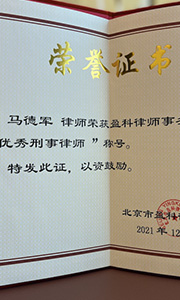 荣誉证书
马德军 律师荣获盈科律师事
优秀刑事律师”称号。
特发此证，以资鼓励。
北京市盈科
2021年12